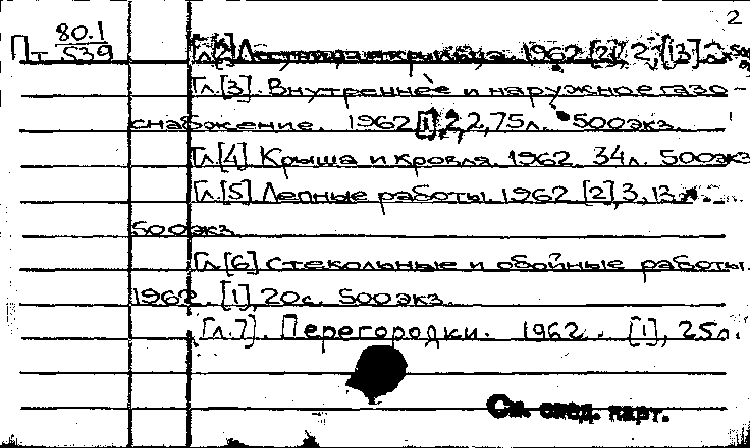 2
Пт 80.1
539
Гл[2] Лестницы и крыльца. 1962 [2], 2, [13]л.
Гл.[3]. Внутреннее и наружное газо-
снабжение. 1962 [1], 2,2,75л. 500экз.
Гл[4] Крыша и кровля. 1962. 34л. 500экз
Гл.[5] Лепные работы. 1962 [2], 3, 13л.
500экз
Гл.[6] Стекольные и обойные работы.
1962. [1], 20с. 500экз.
[Гл.7]. Перегородки. 1962. [1], 25л.
См. след. карт.